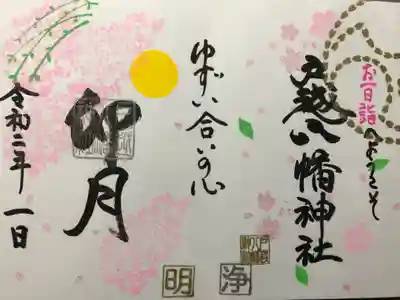 お一日詣へようこそ
戸越八幡神社
ゆずり合いの心
卯月
令和二年 一日
浄
明